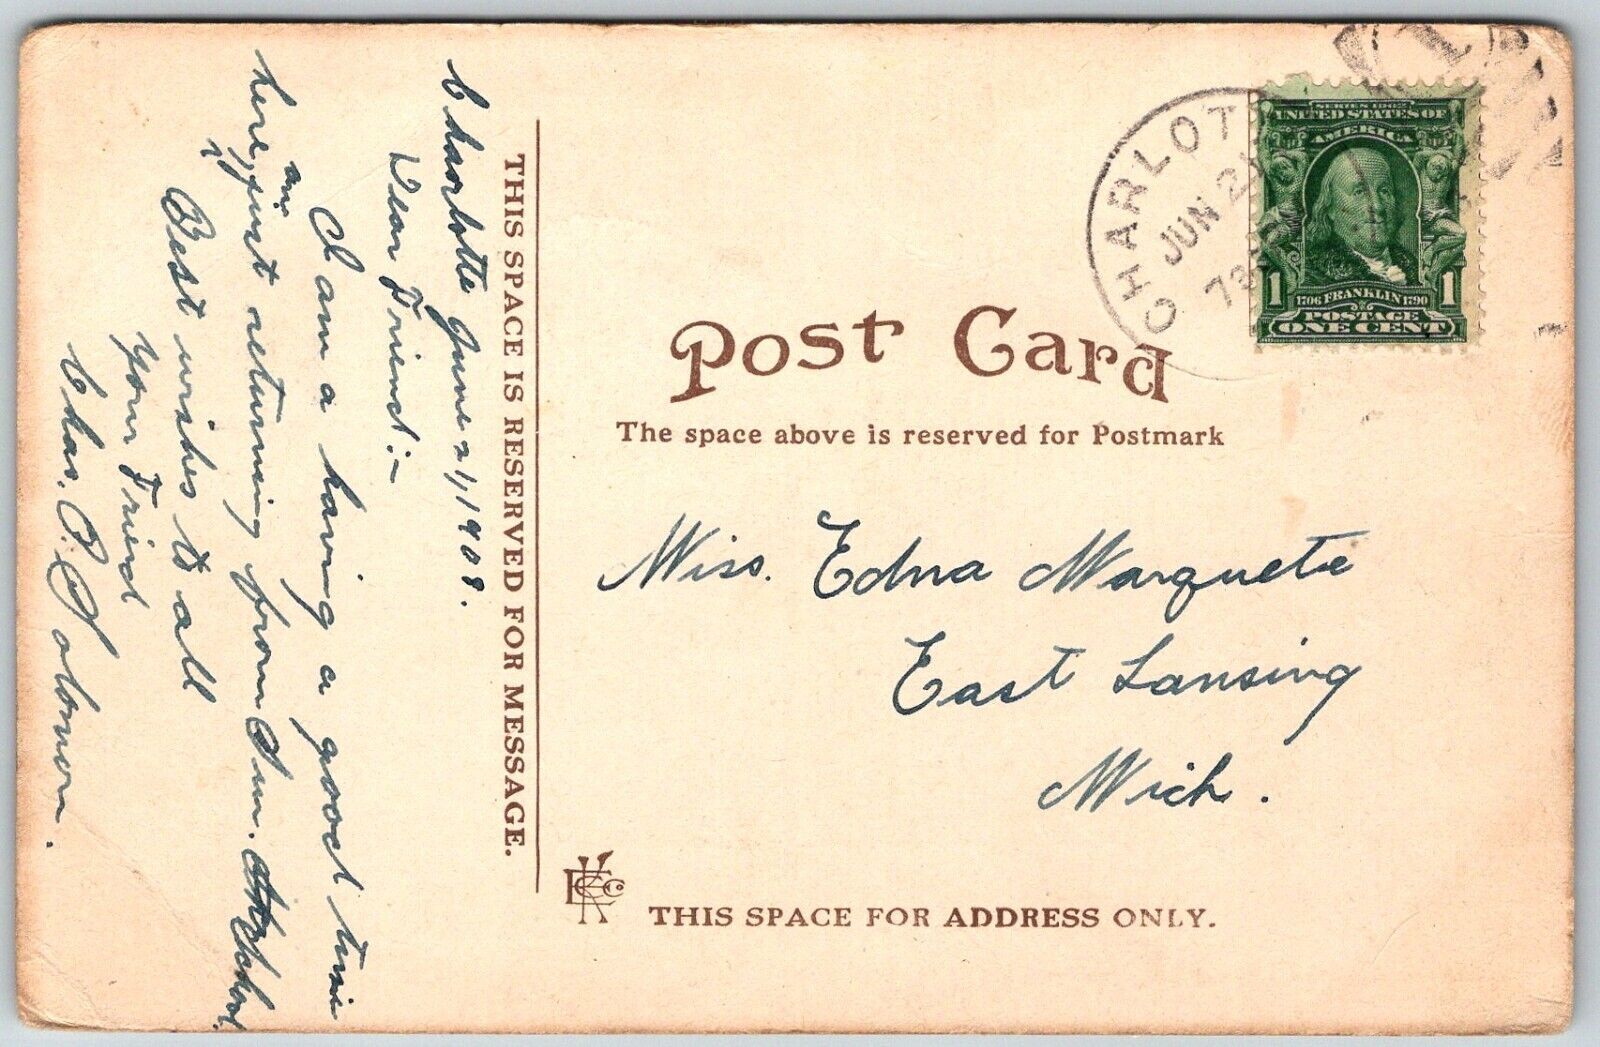 Charlotte June 21, 1908.
Dear Friend:-
I am a having a good time
here, am
I just returning from Sun. School.
Best wishes to all
Your Friend
Chas. P. Solomon.
THIS SPACE IS RESERVED FOR MESSAGE.
CHARLOT
JUN 21
SERIES 1902
UNITED STATES OF
AMERICA
1706 FRANKLIN 1790
1 1
POSTAGE
ONE CENT
Post Card
The space above is reserved for Postmark
Miss. Edna Marquete
East Lansing
Mich.
THIS SPACE FOR ADDRESS ONLY.